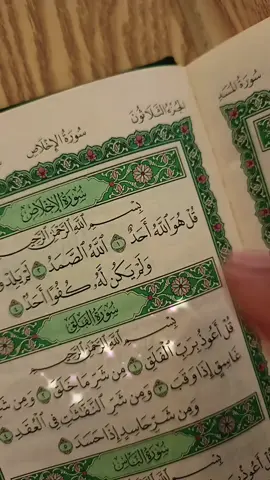 الجزء الثلاثون
سورة الإخلاص
سورة المسد
سورة الإخلاص
بسم الله الرحمن الرحيم
قُلْ هُوَ اللَّهُ أَحَدٌ ١ اللَّهُ الصَّمَدُ ٢ لَمْ يَلِدْ
وَلَمْ يَكُن لَّهُ كُفُوًا أَحَدٌ ٤
سورة الفلق
بسم الله الرحمن الرحيم
قُلْ أَعُوذُ بِرَبِّ الْفَلَقِ ١ مِن شَرِّ مَا خَلَقَ ٢ وَمِن شَرِّ
غَاسِقٍ إِذَا وَقَبَ ٣ وَمِن شَرِّ النَّفَّاثَاتِ فِي الْعُقَدِ ٤
وَمِن شَرِّ حَاسِدٍ إِذَا حَسَدَ ٥
سورة الناس